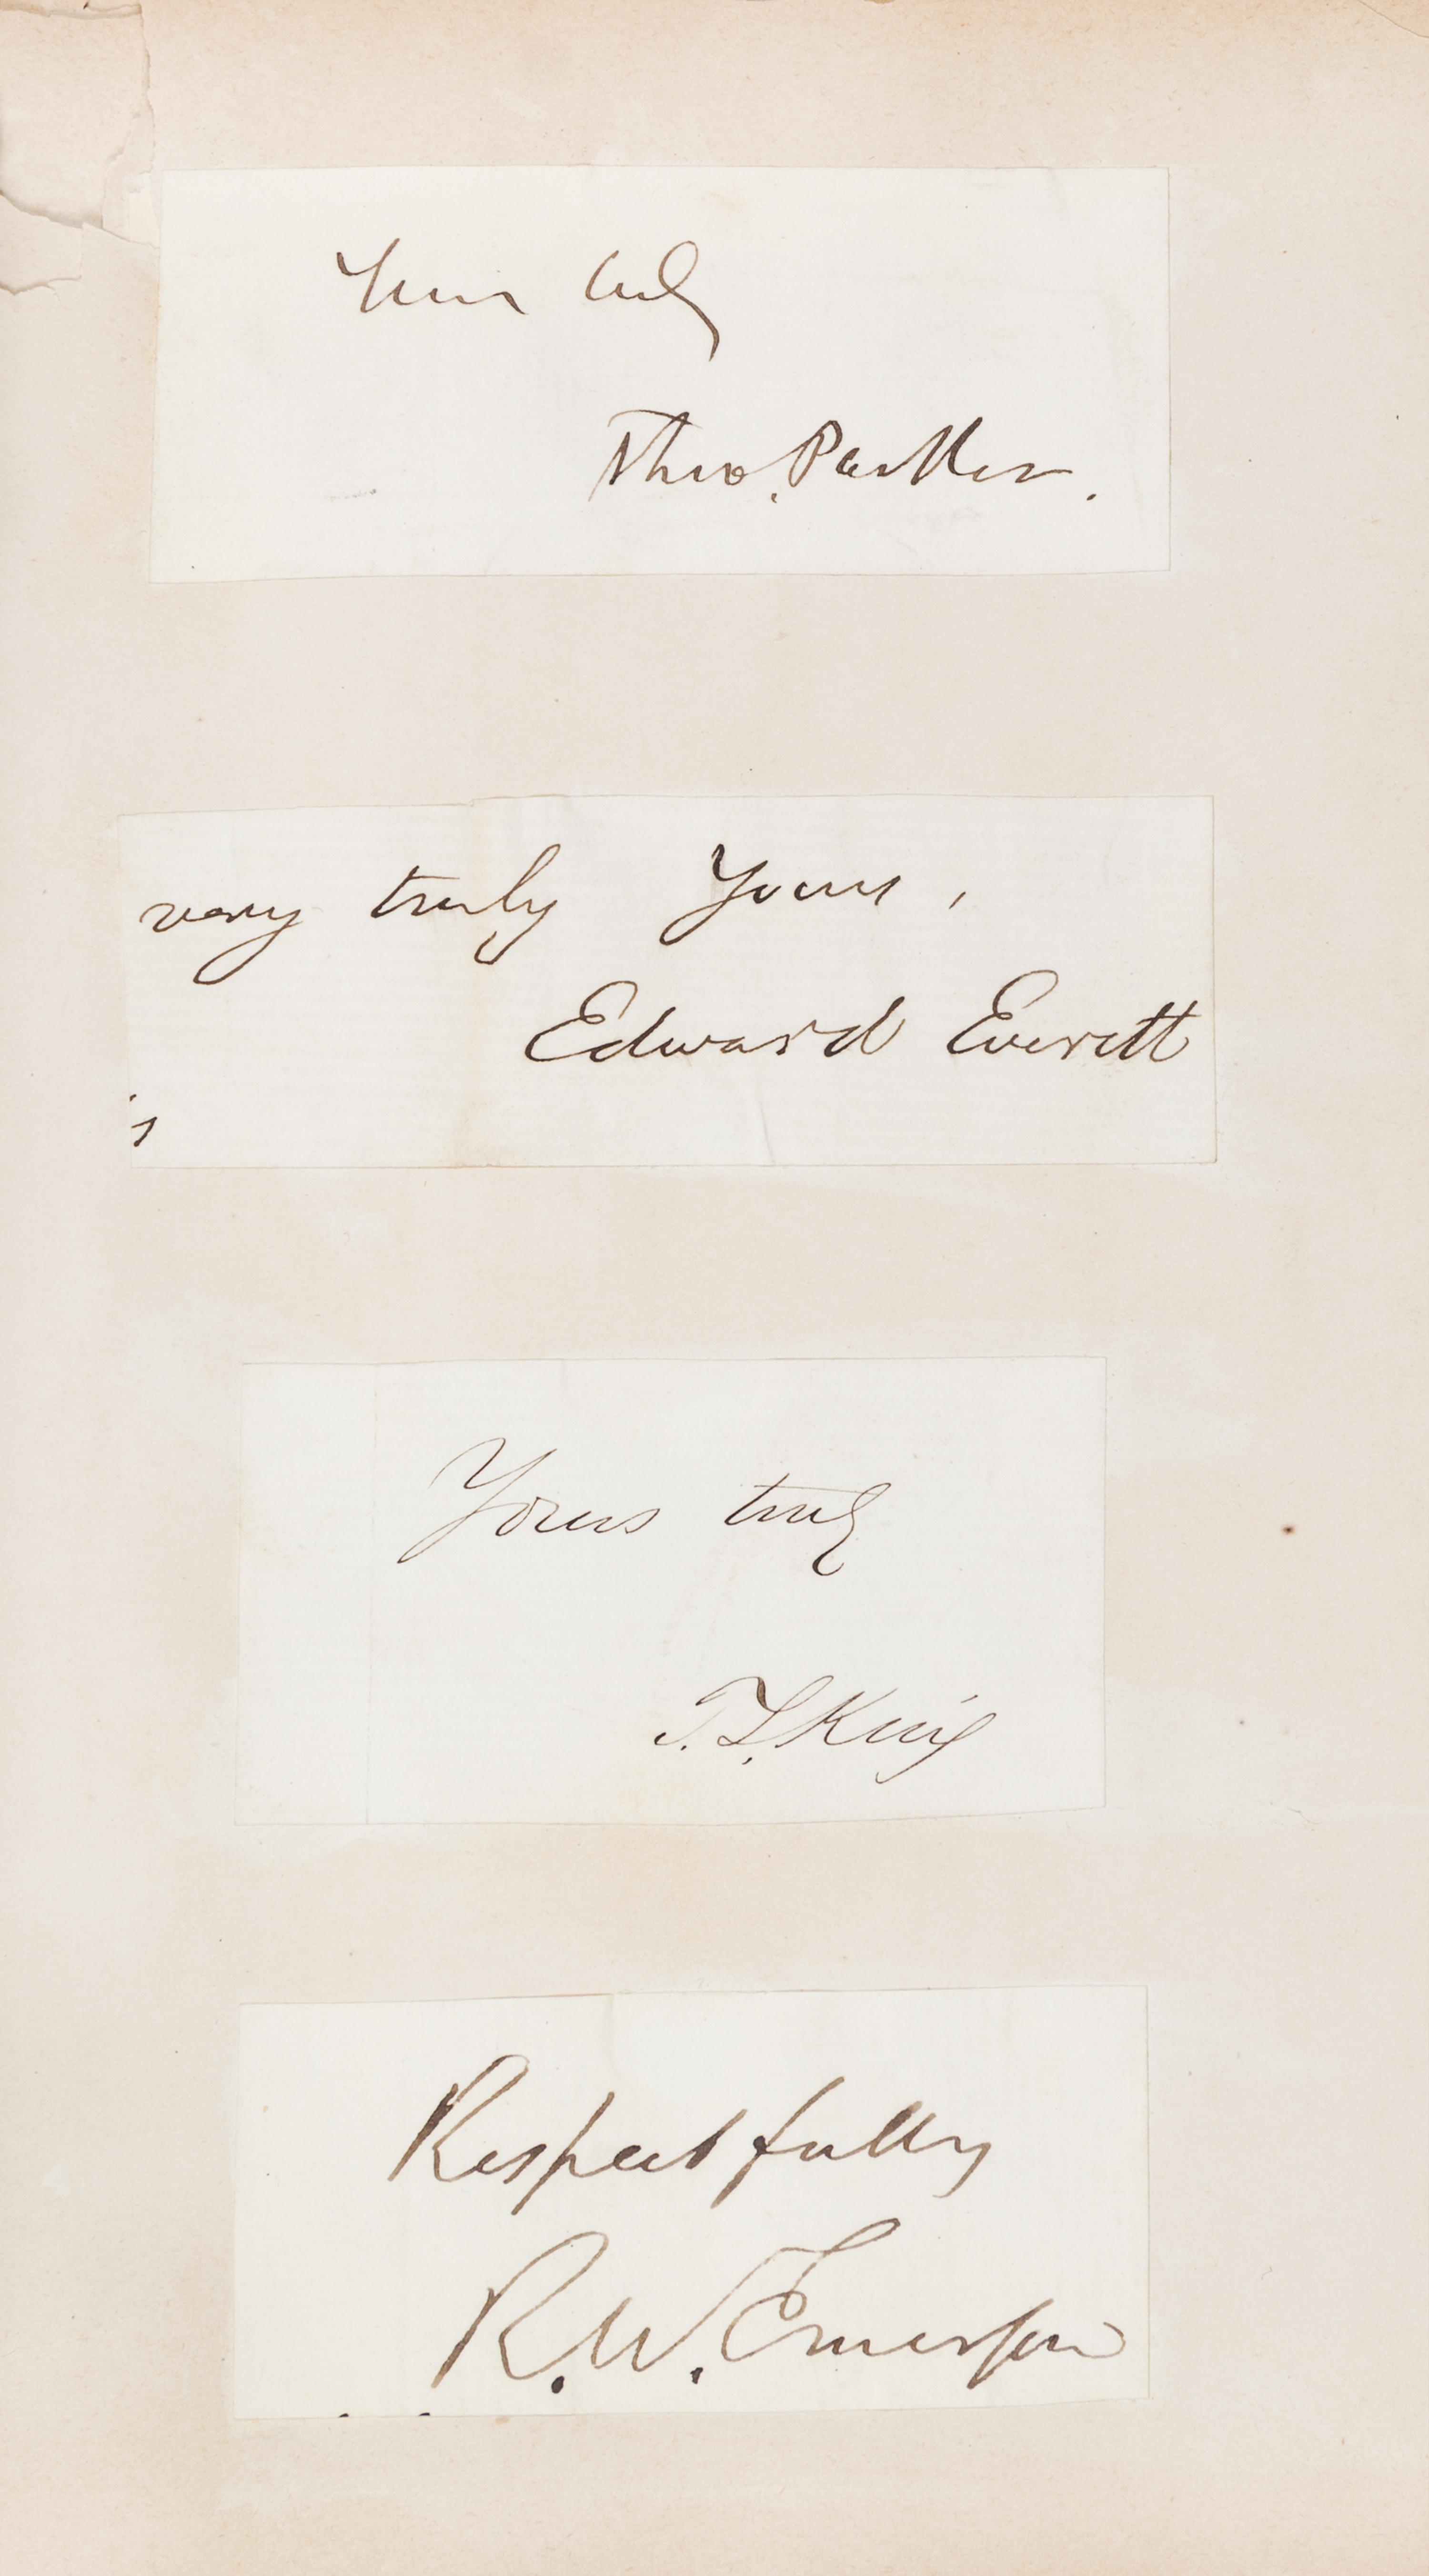 Yours truly
Theo. Parker.
very truly Yours,
Edward Everett
Yours truly
T. S. King
Respectfully
R. W. Emerson